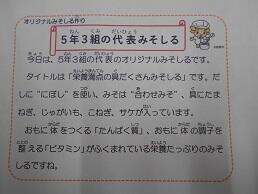 オリジナルみそしる作り
5年3組の代表みそしる
今日は、5年3組の代表のオリジナルみそしるです。
タイトルは「栄養満点の具だくさんみそしる」です。だ
しに“にぼし”を使い、みそは“合わせみそ”、具にたま
ねぎ、じゃがいも、こねぎ、サケが入っています。
おもに体をつくる「たんぱく質」、おもに体の調子を
整える「ビタミン」がふくまれている栄養たっぷりのみそ
しるですね。